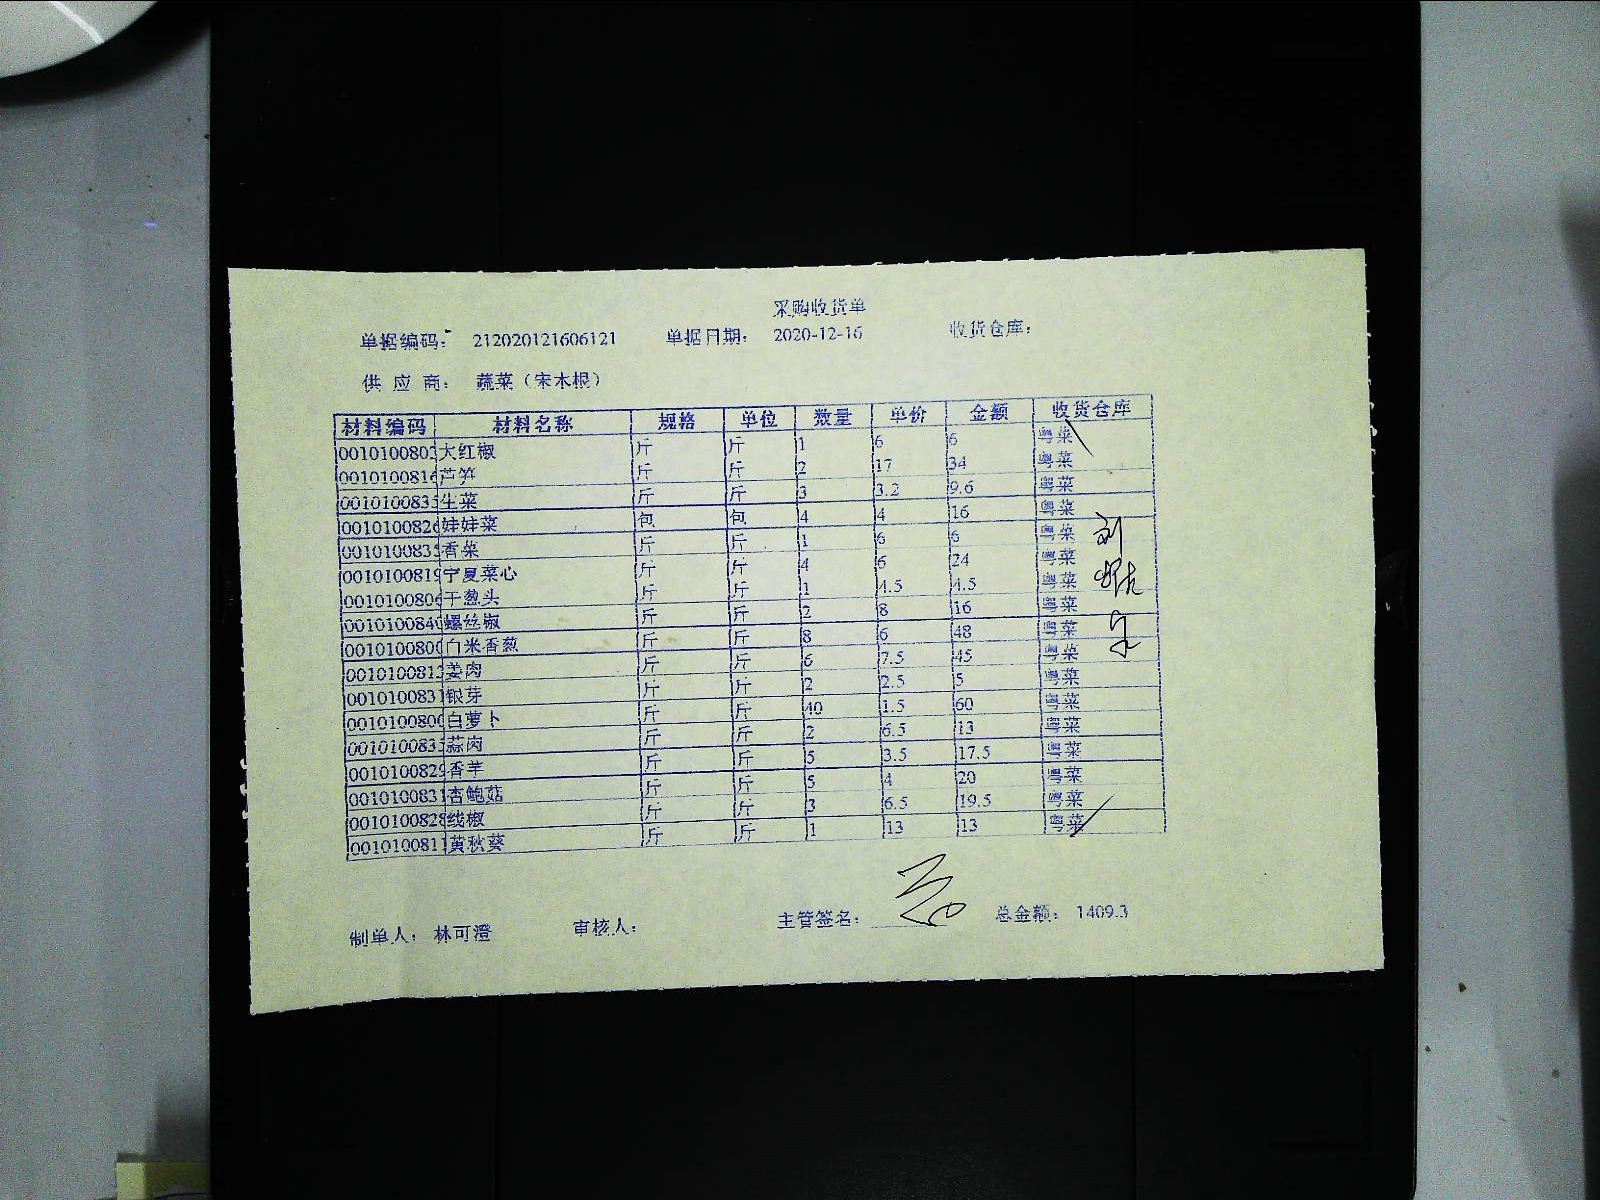 采购收货单
单据编码： 212020121606121 单据日期： 2020-12-16 收货仓库：
供 应 商： 蔬菜（宋木根）
材料编码 材料名称 规格 单位 数量 单价 金额 收货仓库
0010100803 大红椒 斤 斤 1 6 6 粤菜
0010100816 芦笋 斤 斤 2 17 34 粤菜
001010083 生菜 斤 斤 3 3.2 9.6 粤菜
0010100826 娃娃菜 包 包 4 4 16 粤菜
001010083 香菜 斤 斤 1 6 6 粤菜
0010100819 宁夏菜心 斤 斤 4 6 24 粤菜
0010100806 干葱头 斤 斤 1 4.5 4.5 粤菜
0010100840 螺丝椒 斤 斤 2 8 16 粤菜
0010100800 白米香葱 斤 斤 8 6 48 粤菜
001010081 姜肉 斤 斤 6 7.5 45 粤菜
0010100831 银芽 斤 斤 2 2.5 5 粤菜
0010100800 白萝卜 斤 斤 40 1.5 60 粤菜
001010083 蒜肉 斤 斤 2 6.5 13 粤菜
0010100829 香芋 斤 斤 5 3.5 17.5 粤菜
0010100831 杏鲍菇 斤 斤 5 4 20 粤菜
0010100828 线椒 斤 斤 3 6.5 19.5 粤菜
0010100811 黄秋葵 斤 斤 1 13 13 粤菜
制单人： 林可澄 审核人： 主管签名： 总金额： 1409.3